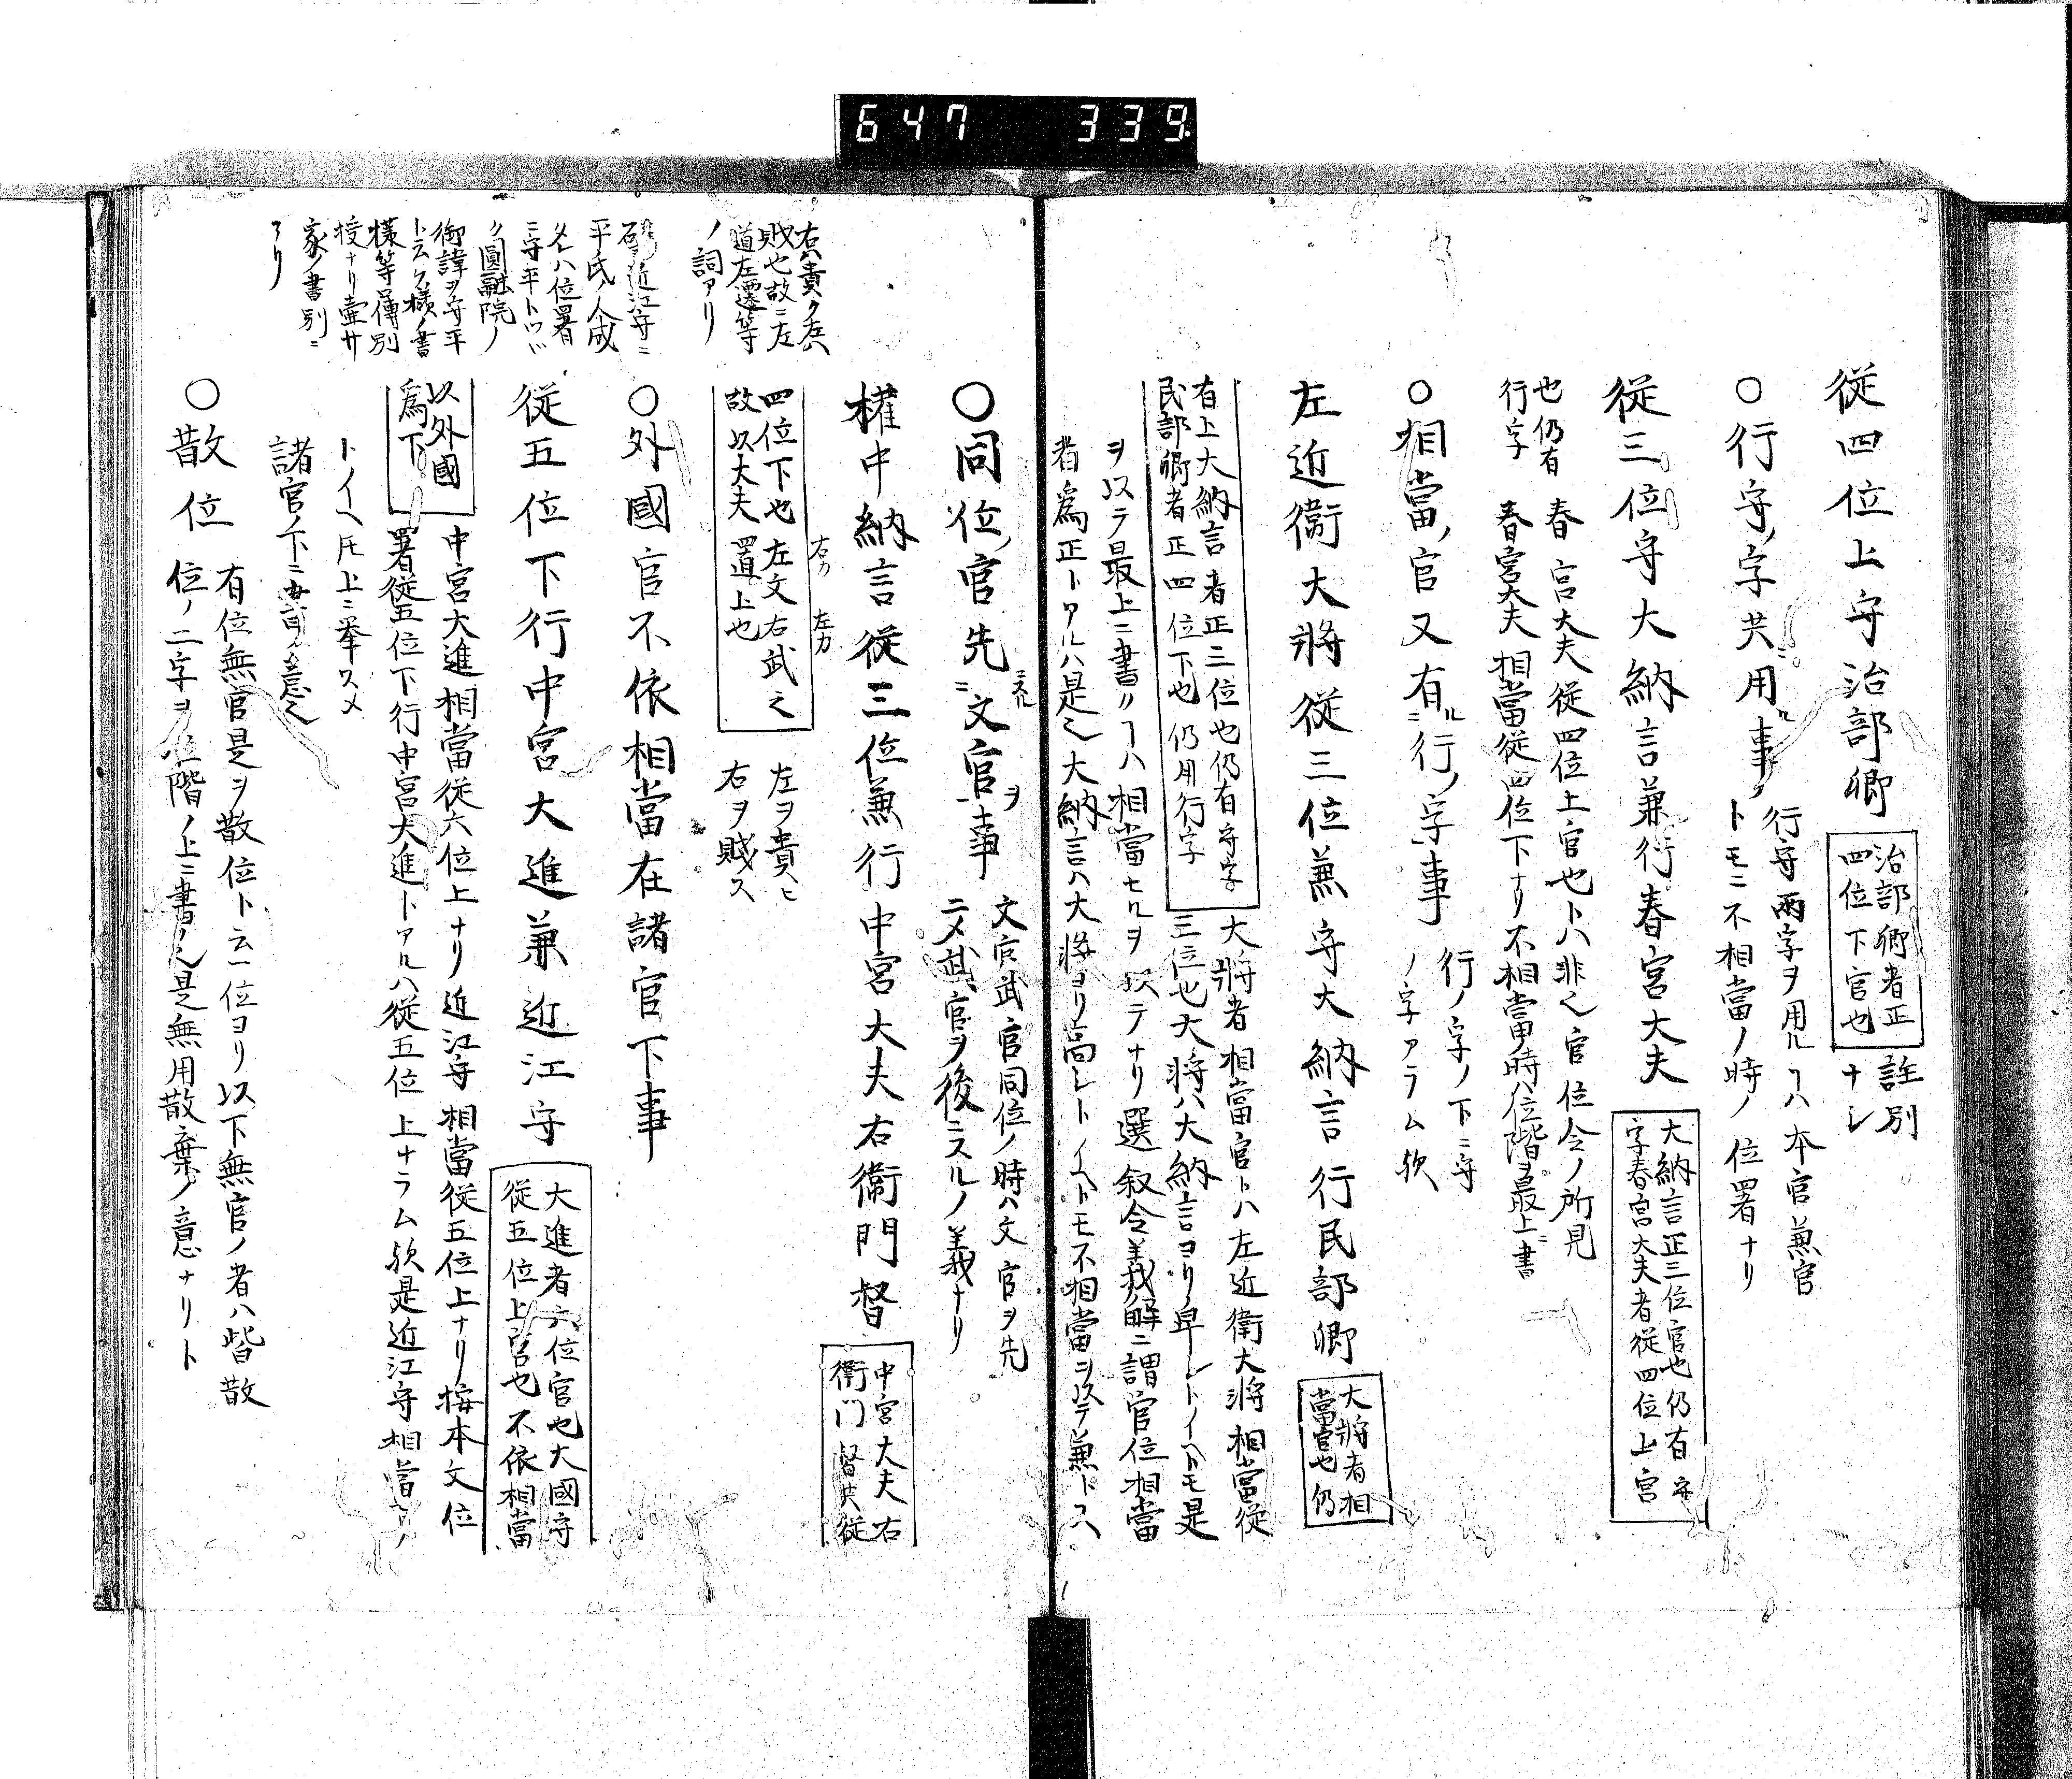 647 339.
従四位上守治部卿
治部卿者正
四位下官也
註別
ナシ
○行守ノ字共ニ用ル事
行守両字ヲ用ルヿハ本官兼官
トモニ不相當ノ時ノ位署ナリ
従三位守大納言兼行春宮大夫
大納言正三位官也仍有守
字春宮大夫者従四位上官
也仍有
行字
春宮大夫従四位上官也トハ非也官位令ノ所見
春宮大夫相當従四位下ナリ不相當ノ時ハ位階ヲ最上ニ書
○相當ノ官又有ルニ行ノ字事
行ノ字ノ下ニ守
ノ字アラム欤
左近衞大將従三位兼守大納言行民部卿
大將者相
當官也仍
有上大納言者正三位也仍有守字
民部卿者正四位下也仍用行字
大將者相當官トハ左近衛大將相當従
三位也大將ハ大納言ヨリ卑シトイヘトモ是
ヲ以テ最上ニ書クヿハ相當セルヲ以テナリ選叙令義解ニ謂官位相當
者為正トアルハ是也大納言ハ大將ヨリ高シトイヘトモ不相當ヲ以テ兼トス
○同位ノ官先ニスル文官ヲ事
文官武官同位ノ時ハ文官ヲ先
ニメ武官ヲ後ニスルノ義ナリ
權中納言従三位兼行中宮大夫右衞門督
中宮大夫右
衛門督共従
四位下也左文右武之
故以大夫置上也
右カ
左カ
左ヲ貴ヒ
右ヲ賤ス
○外國官不依相當在諸官下事
従五位下行中宮大進兼近江守
大進者六位官也大國守
従五位上官也不依相當
以外國
為下
中宮大進相當従六位上ナリ近江守相當従五位上ナリ按本文位
署従五位下行中宮大進トアルハ従五位上ナラム欤是近江守相當官ノ
トイヘ𪜈上ニ挙スメ
諸官ノ下ニ書ノ意也
○散位
有位無官是ヲ散位ト云一位ヨリ以下無官ノ者ハ皆散
位ノ二字ヲ位階ノ上ニ書ク也是無用散棄ノ意ナリト
右ハ貴ク左ハ
賎也故ニ左
道左遷等
ノ詞アリ
近江守ニ
平氏ノ人成
タレハ位署
ニ守平トツヾ
ク圓融院ノ
御諱ヲ守平
ト云ク様ノ書
様等傳別
授ナリ壷井
家ノ書別ニ
アリ